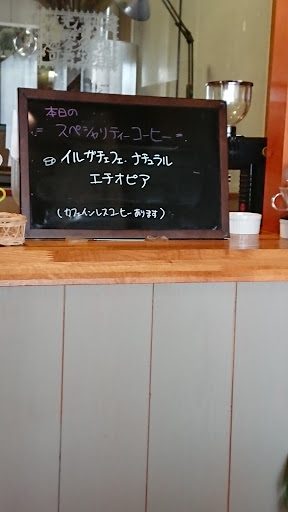 本日の
= スペシャリティーコーヒー =
イルガチェフェ ナチュラル
エチオピア
(カフェインレスコーヒーあります)